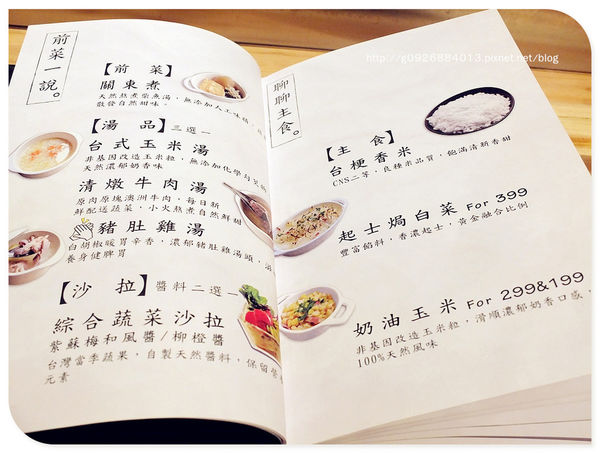 http://g0926884013.pixnet.net/blog
前菜一說。
【前 菜】
關東煮
天然熬煮柴魚湯，無添加人工味精，
散發自然甜味。
【湯 品】三選一
台式玉米湯
非基因改造玉米粒，無添加化學勾芡
天然濃郁奶香味
清燉牛肉湯
原肉原塊澳洲牛肉，每日新
鮮配送蔬菜，小火熬煮自然鮮甜
豬肚雞湯
白胡椒暖胃辛香，濃郁豬肚雞湯頭，
養身健脾胃
【沙 拉】醬料二選一
綜合蔬菜沙拉
紫蘇梅和風醬/柳橙醬
台灣當季蔬果，自製天然醬料，保留營
元素
聊聊主食。
【主 食】
台梗香米
CNS二等，良種米品質，飽滿清新香甜
起士焗白菜 For 399
豐富餡料，香濃起士，黃金融合比例
奶油玉米 For 299&199
非基因改造玉米粒，滑順濃郁奶香口感，
100%天然風味